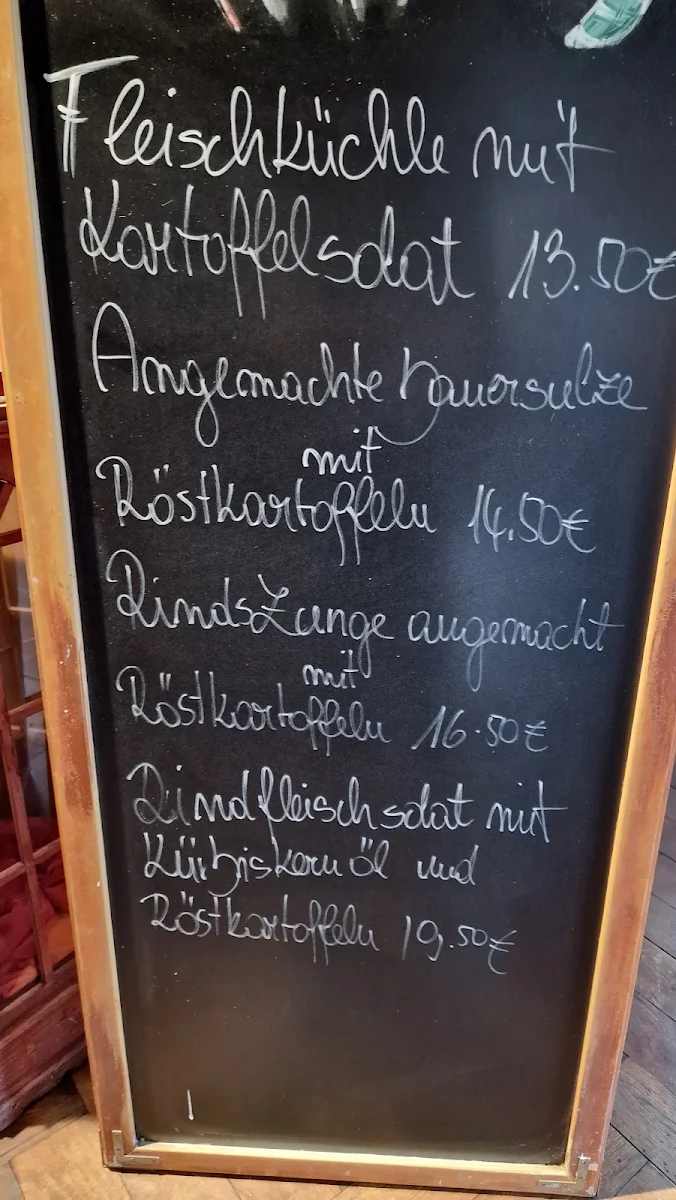 Fleischküchle mit
Kartoffelsalat 13.50€
Angemachte Bauersulze
mit
Röstkartoffeln 14.50€
Rindszunge angemacht
mit
Röstkartoffeln 16.50€
Rindfleischsalat mit
Kürbiskernöl und
Röstkartoffeln 19.50€